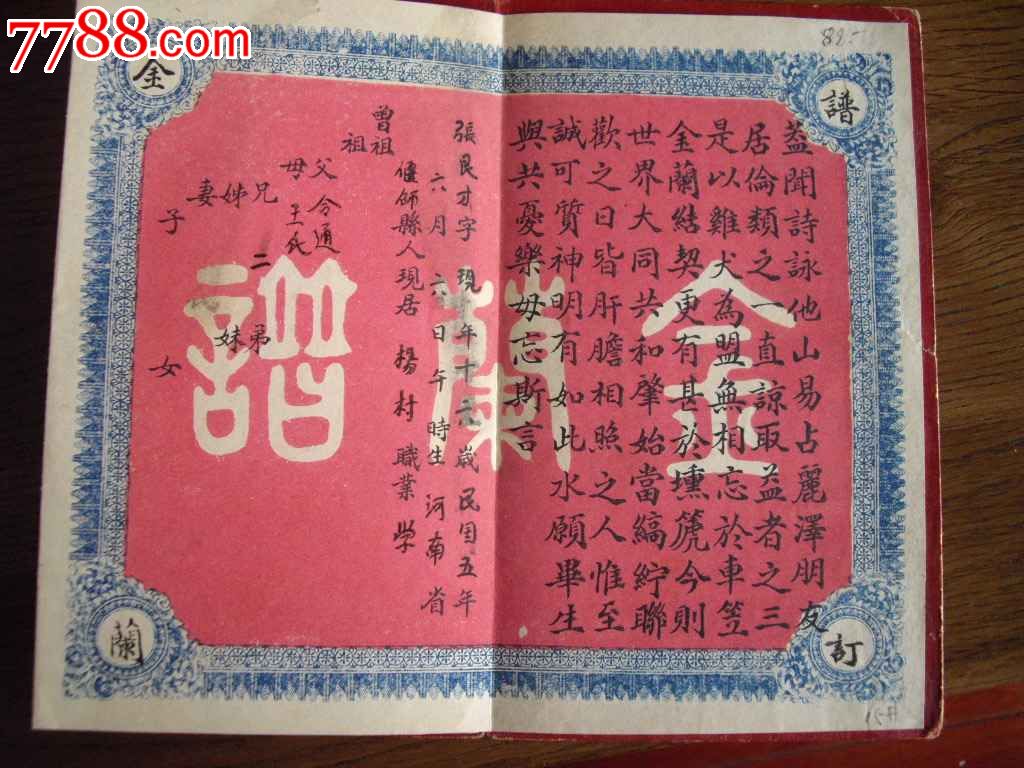 7788.com
金
譜
蘭
訂
金蘭譜
蓋聞詩詠他山易占麗澤朋友
居倫類之一直諒取益者之三
是以雞犬為盟無相忘於車笠
金蘭結契更有甚於壎篪今則
世界大同共和肇始當縞紵聯
歡之日皆肝膽相照之人惟至
誠可質神明有如此水願畢生
與共憂樂毋忘斯言
張良才字 現年十六歲民国五年
六月 六日午時生 河南省
偃師縣人現居 楊村 職業 学
曾祖
祖
父 令通
母 王氏
兄 二 弟
姊 妹
妻
子 女